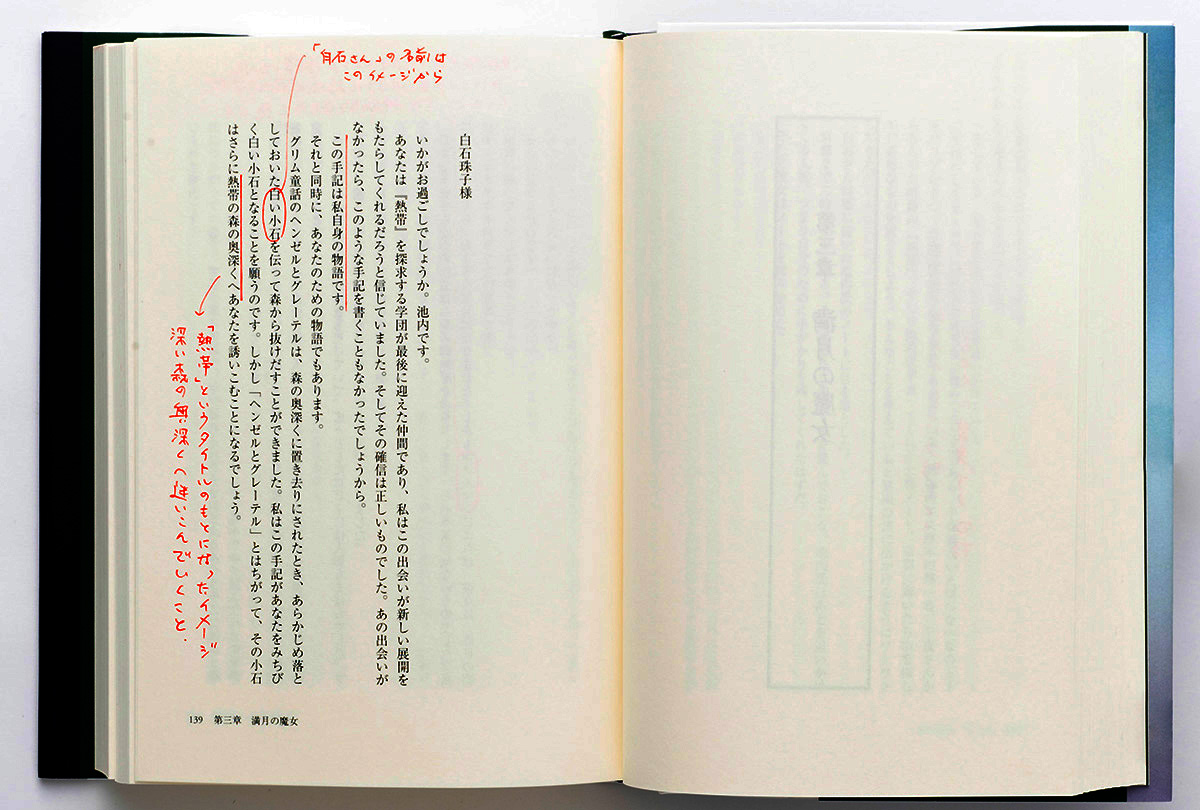 「白石さん」の名前は
このイメージから
白石珠子様
いかがお過ごしでしょうか。池内です。
あなたは『熱帯』を探求する学団が最後に迎えた仲間であり、私はこの出会いが新しい展開を
もたらしてくれるだろうと信じていました。そしてその確信は正しいものでした。あの出会いが
なかったら、このような手記を書くこともなかったでしょうから。
この手記は私自身の物語です。
それと同時に、あなたのための物語でもあります。
グリム童話のヘンゼルとグレーテルは、森の奥深くに置き去りにされたとき、あらかじめ落と
しておいた白い小石を伝って森から抜けだすことができました。私はこの手記があなたをみちび
く白い小石となることを願うのです。しかし「ヘンゼルとグレーテル」とはちがって、その小石
はさらに熱帯の森の奥深くへあなたを誘いこむことになるでしょう。
「熱帯」というタイトルのもとになったイメージ
深い森の奥深くへ迷いこんでいくこと.
139 第三章 満月の魔女